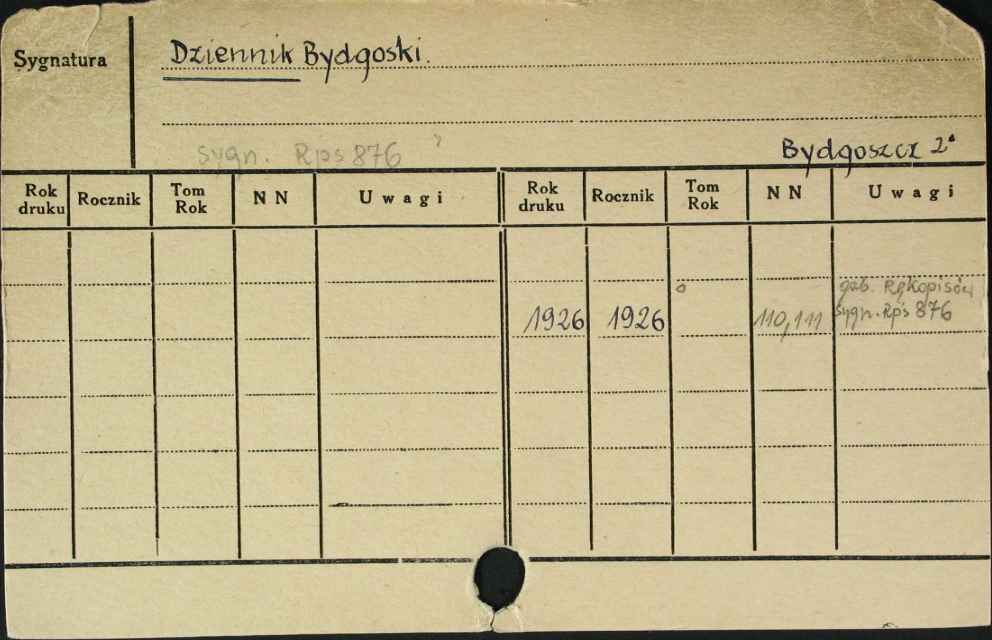 Sygnatura
Dziennik Bydgoski.
sygn. Rps 876
Bydgoszcz 2°
Rok druku Rocznik Tom Rok N N Uwagi Rok druku Rocznik Tom Rok N N Uwagi
gab. Rękopisów
1926 1926 110,111 sygn. Rps 876